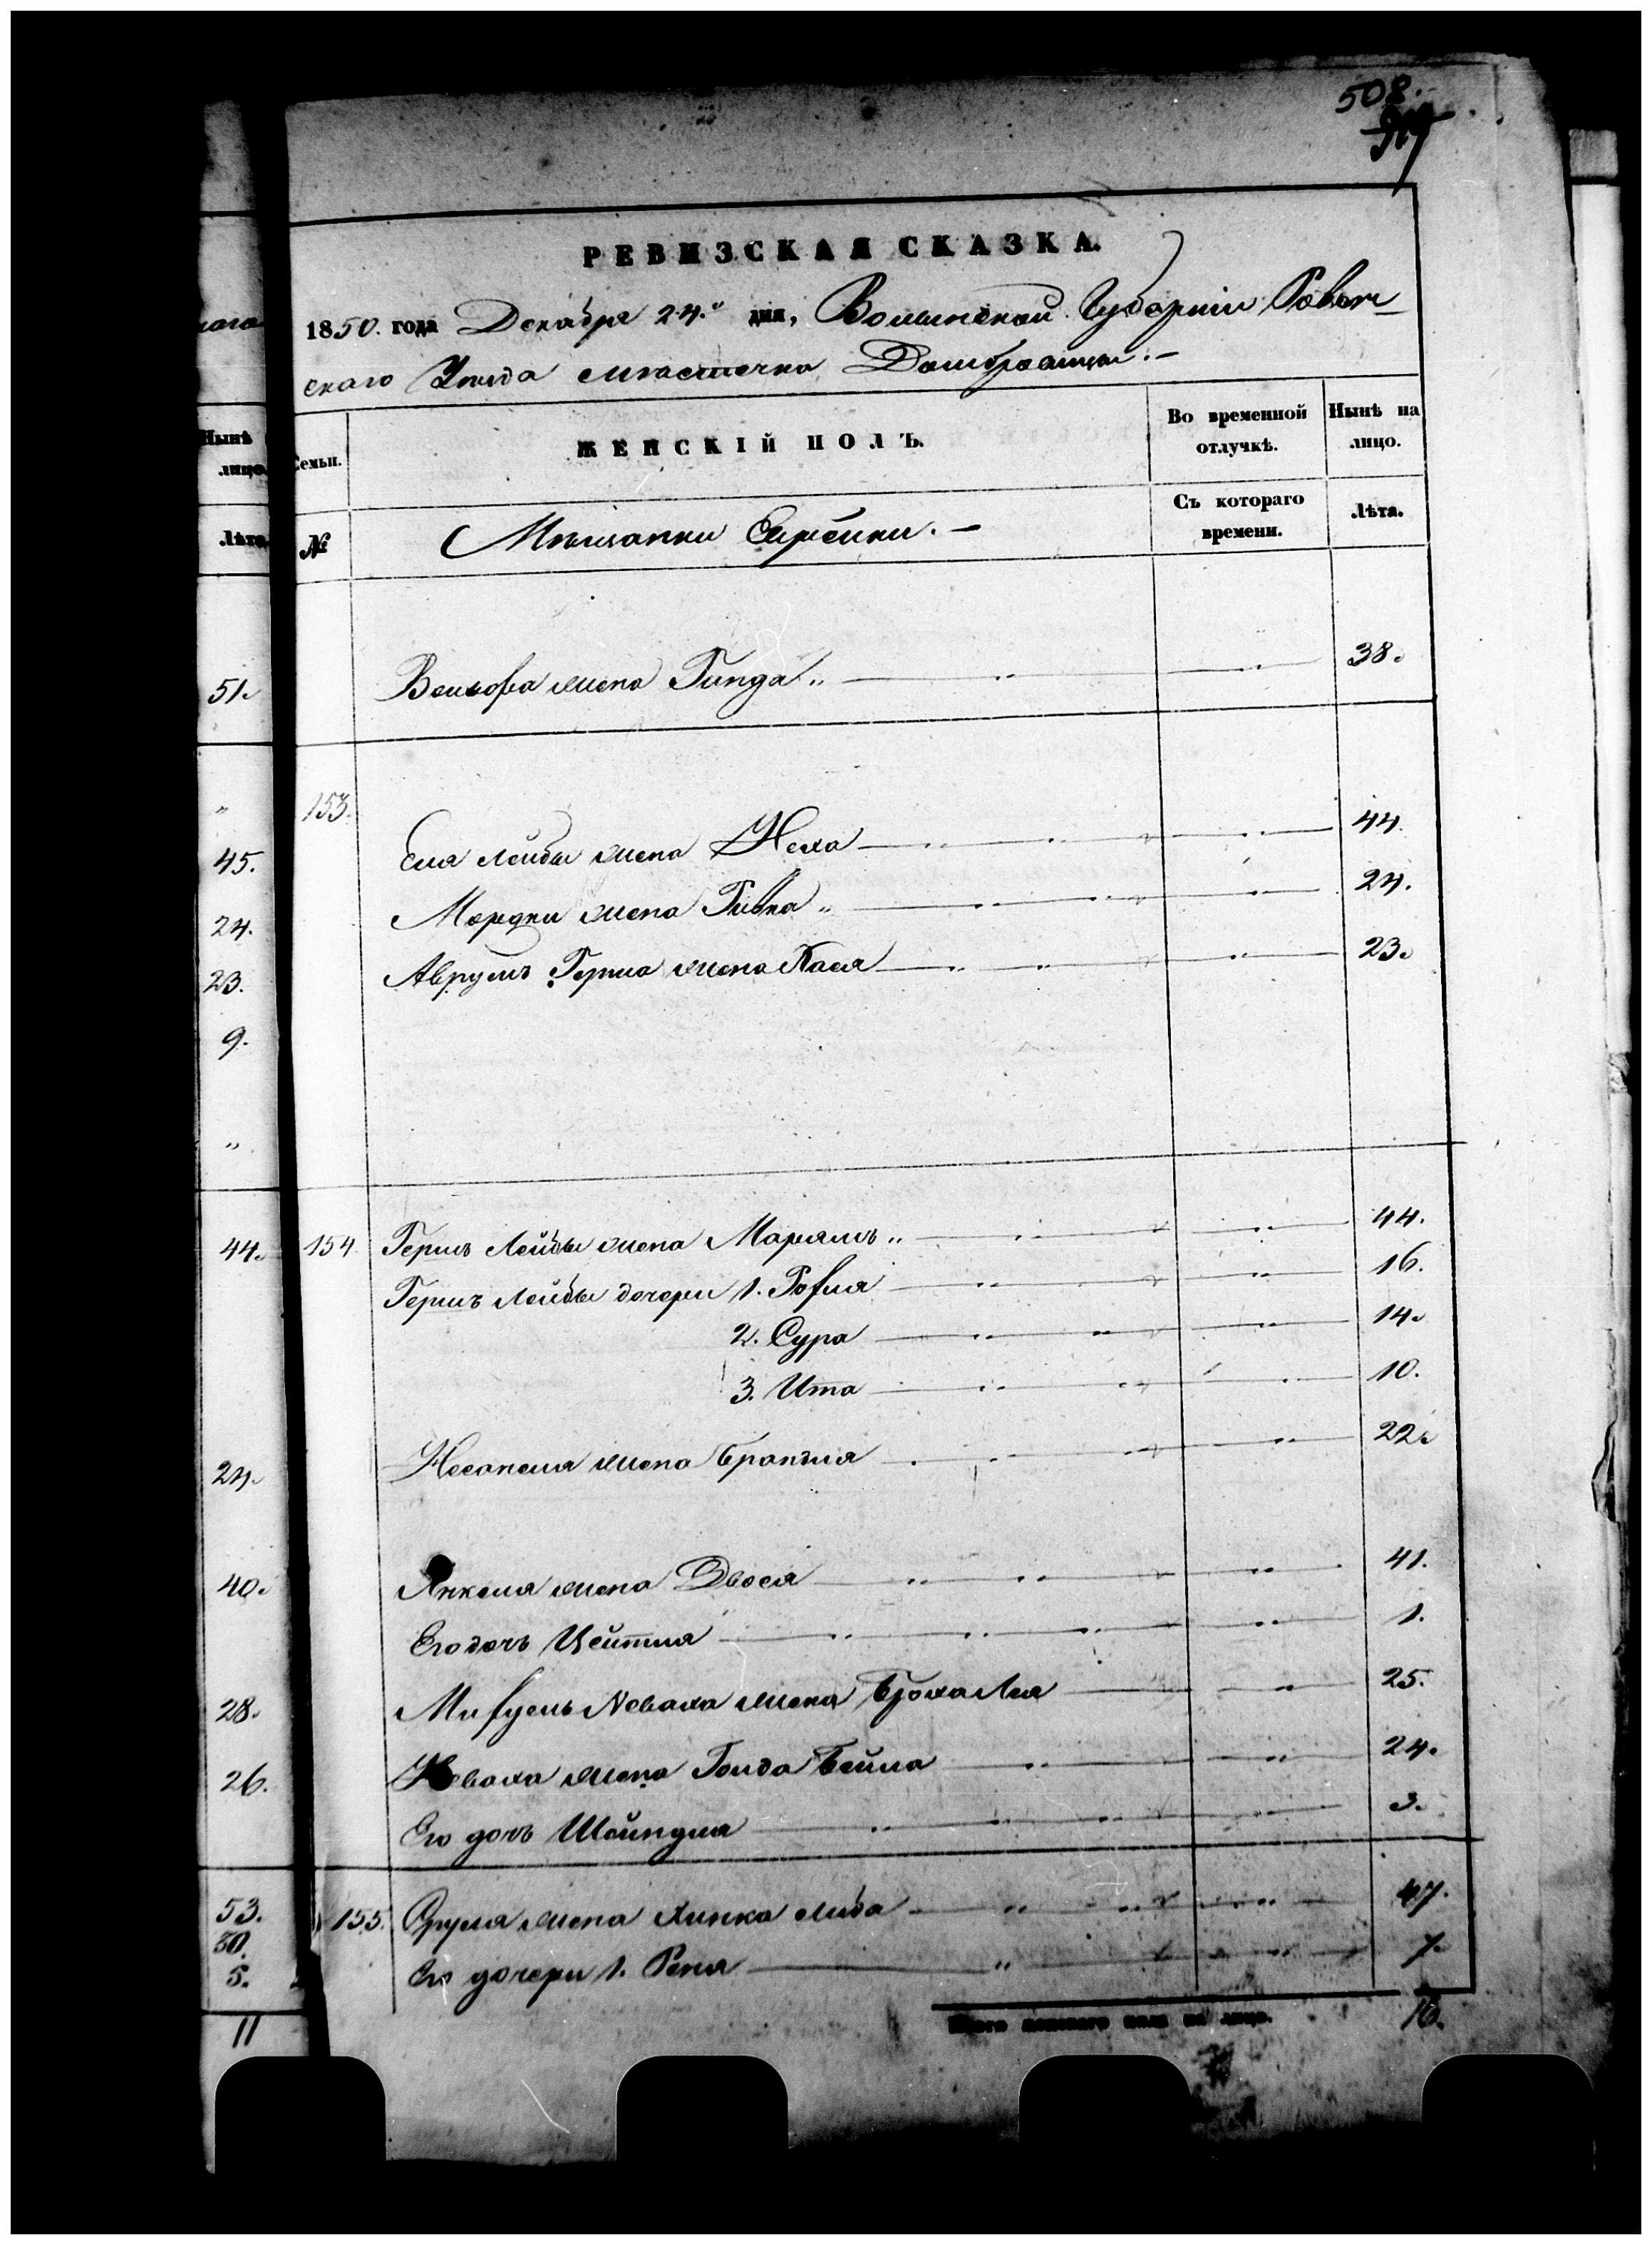 508.
РЕВИЗСКАЯ СКАЗКА.
1850. года Декабря 24.го дня, Волынской Губерніи Ровен-
скаго Уезда местечка Домбровицы.-
Нынѣ
лицо
Семьи.
ЖЕНСКІЙ ПОЛЪ.
Во временной отлучкѣ.
Нынѣ на лицо.
Лѣта
№
Мещанки Еврейки.-
Съ котораго времени.
Лѣта.
51. Велькова жена Гинда 38.
153.
45. Ела Лейбы жена Неха 44.
24. Мордки жена Ривка 24.
23. Аврумъ Герша жена Пася 23.
9.
44. 154. Гершъ Лейбы жена Марямъ 44.
Гершъ Лейбы дочери 1. Рохля 16.
2. Сура 14.
3. Ита 10.
24. жена Брандля 22.
40. Янкеля жена Двося 41.
Его дочь Цейтля 1.
28. Новаха жена Броха Лея 25.
26. Новаха жена Голда Бейла 24.
Его дочь Шейндля 3.
53. 155. Сруля жена Хинка Либа 47.
30.
5. Его дочери 1. Реня 7.
11 Итого женскаго пола на лицо. 16.